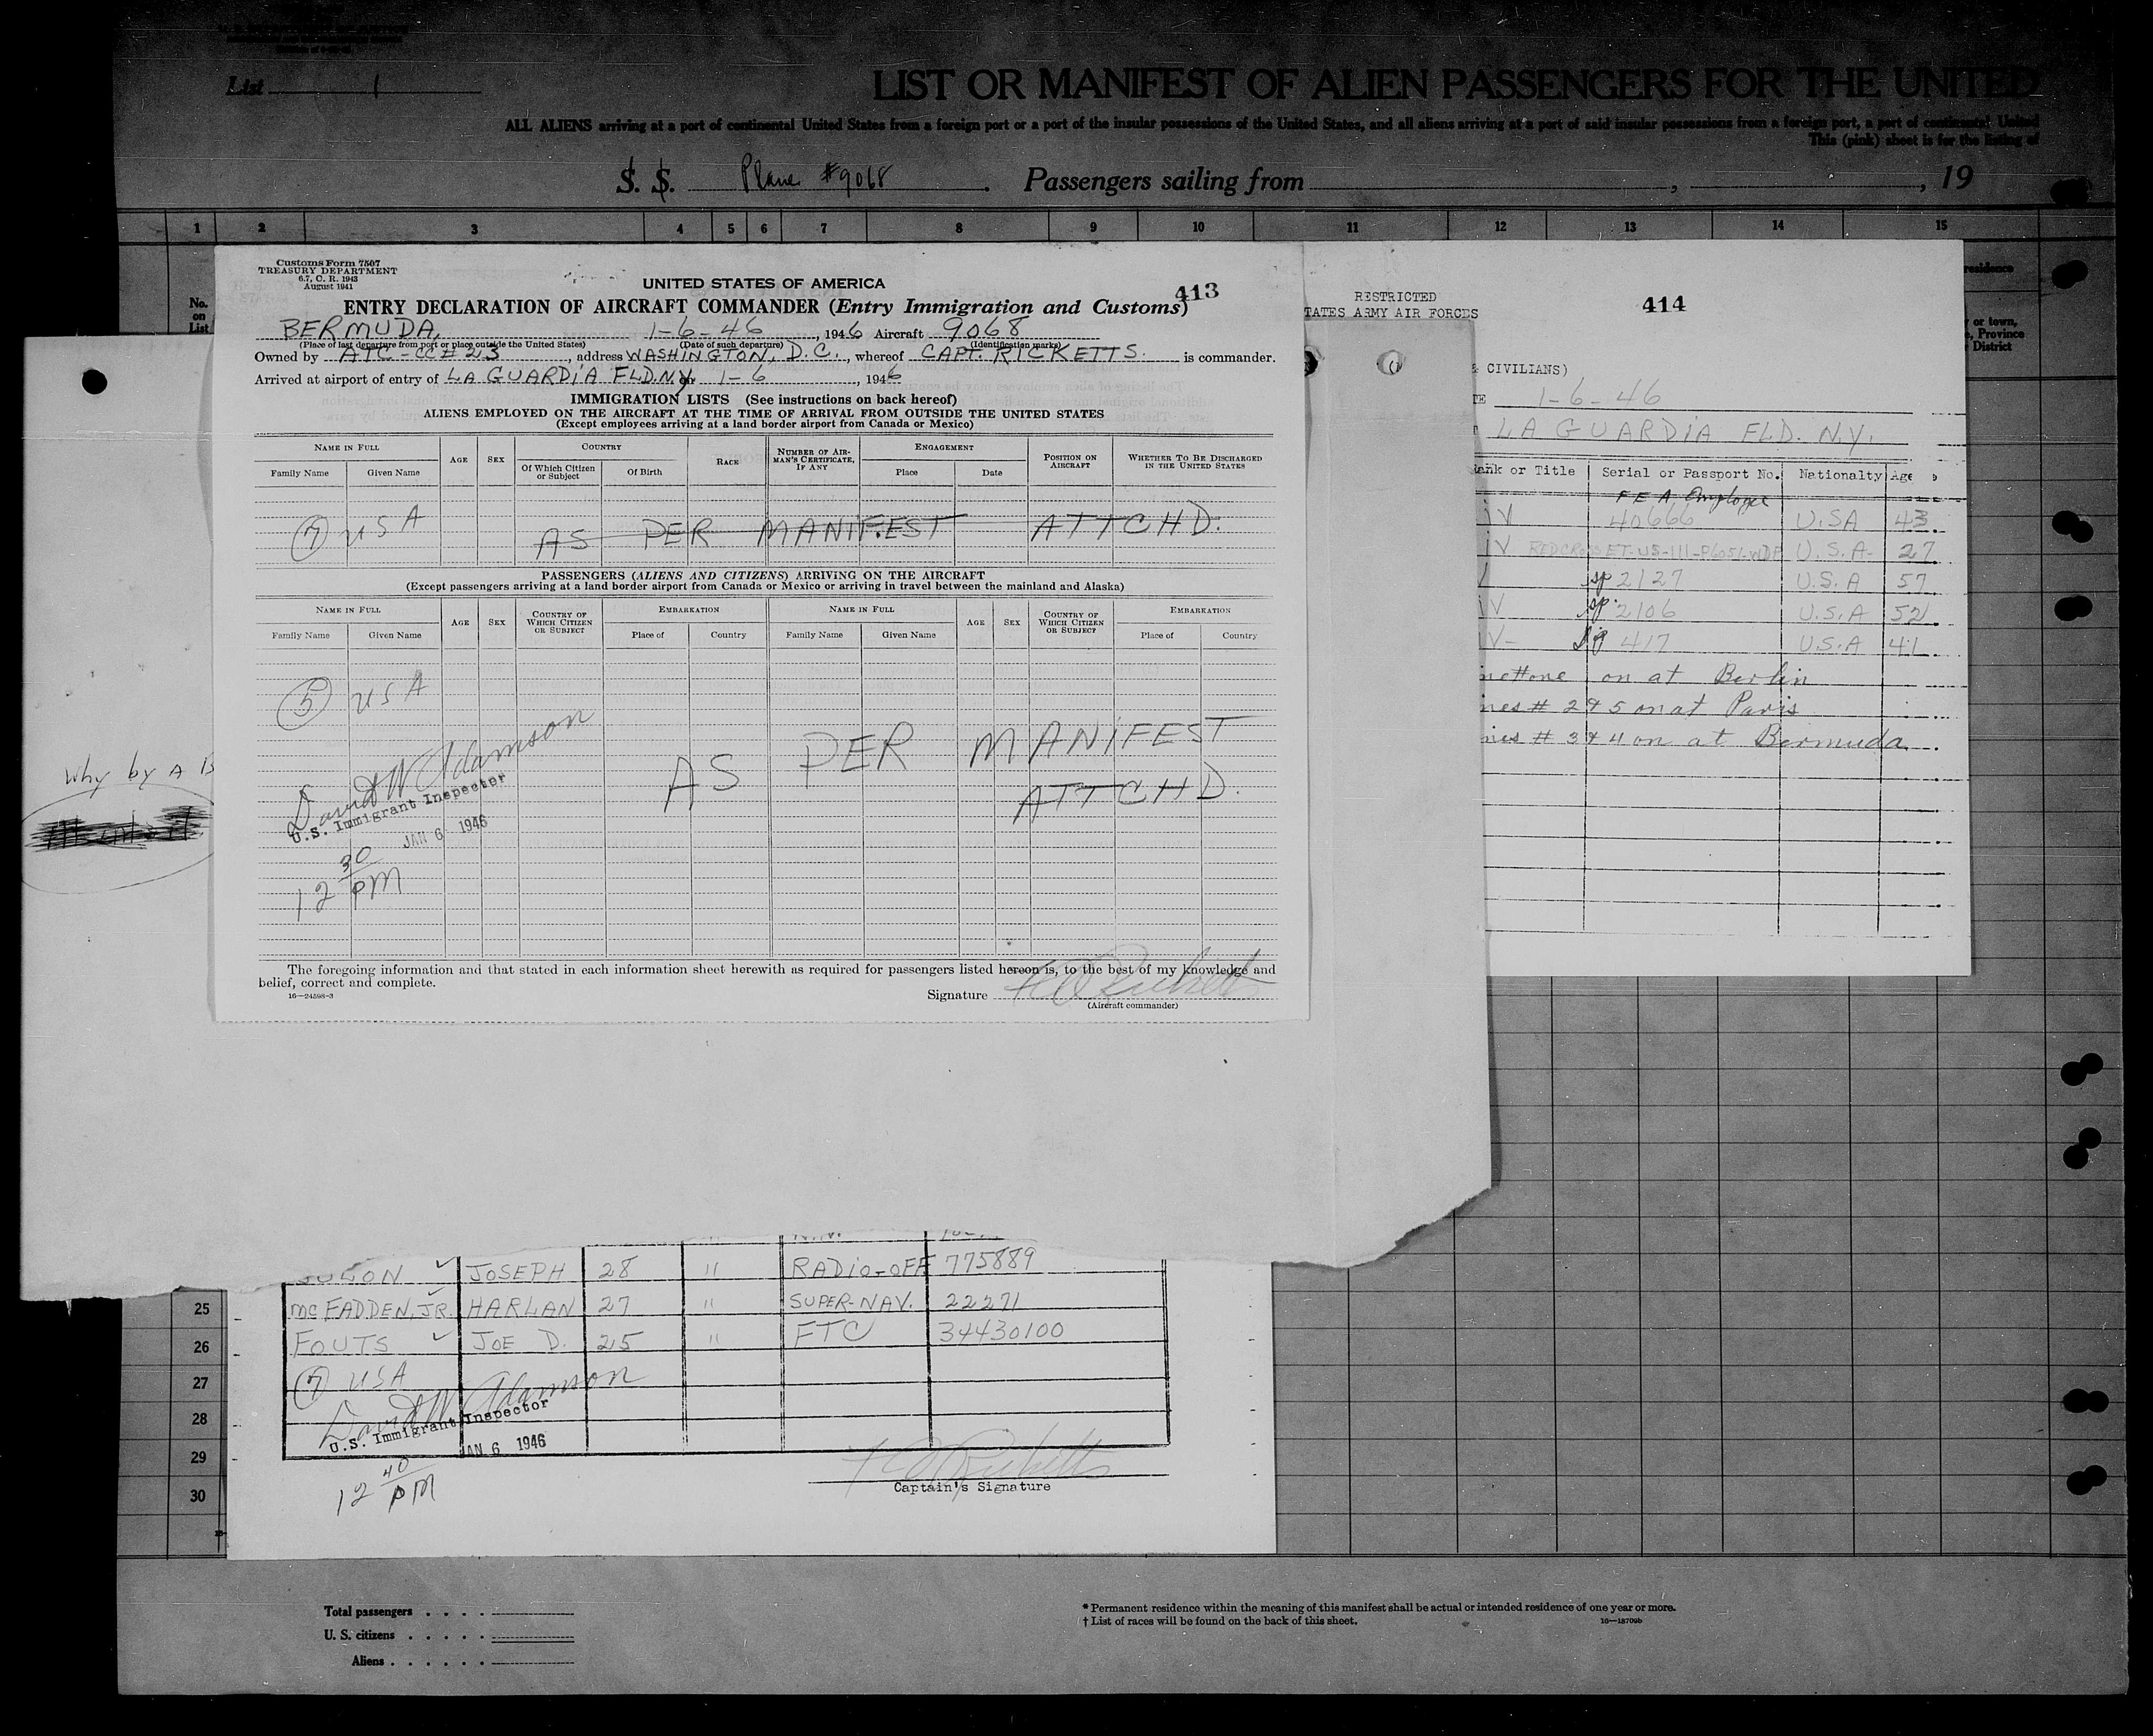 List 1
LIST OR MANIFEST OF ALIEN PASSENGERS FOR THE UNITED
ALL ALIENS arriving at a port of continental United States from a foreign port or a port of the insular possessions of the United States, and all aliens arriving at a port of said insular possessions from a foreign port, a port of continental United
This (pink) sheet is for the listing of
S. S. Plane #9068. Passengers sailing from , , 19
1 2 3 4 5 6 7 8 9 10 11 12 13 14 15
No. on List
residence
or town,
, Province
District
Customs Form 7507
TREASURY DEPARTMENT
6.7, C. R. 1943
August 1941
UNITED STATES OF AMERICA
413
ENTRY DECLARATION OF AIRCRAFT COMMANDER (Entry Immigration and Customs)
BERMUDA, 1-6-46, 1946 Aircraft 9068
(Place of last departure from port or place outside the United States) (Date of such departure) (Identification marks)
Owned by ATC-CC#23, address WASHINGTON, D.C., whereof CAPT. RICKETTS. is commander.
Arrived at airport of entry of LA GUARDIA FLD.N.Y. on 1-6, 1946
IMMIGRATION LISTS (See instructions on back hereof)
ALIENS EMPLOYED ON THE AIRCRAFT AT THE TIME OF ARRIVAL FROM OUTSIDE THE UNITED STATES
(Except employees arriving at a land border airport from Canada or Mexico)
NAME IN FULL AGE SEX COUNTRY RACE NUMBER OF AIRMAN'S CERTIFICATE, IF ANY ENGAGEMENT POSITION ON AIRCRAFT WHETHER TO BE DISCHARGED IN THE UNITED STATES
Family Name Given Name Of Which Citizen or Subject Of Birth Place Date
7 USA AS PER MANIFEST ATTCHD.
PASSENGERS (ALIENS AND CITIZENS) ARRIVING ON THE AIRCRAFT
(Except passengers arriving at a land border airport from Canada or Mexico or arriving in travel between the mainland and Alaska)
NAME IN FULL AGE SEX COUNTRY OF WHICH CITIZEN OR SUBJECT EMBARKATION NAME IN FULL AGE SEX COUNTRY OF WHICH CITIZEN OR SUBJECT EMBARKATION
Family Name Given Name Place of Country Family Name Given Name Place of Country
5 USA
AS PER MANIFEST
ATTCHD.
David W Adamson
U.S. Immigrant Inspector
JAN 6 1946
12 30 PM
The foregoing information and that stated in each information sheet herewith as required for passengers listed hereon is, to the best of my knowledge and
belief, correct and complete.
16—24598-3
Signature
(Aircraft commander)
RESTRICTED
414
TATES ARMY AIR FORCES
& CIVILIANS)
TE 1-6-46
LA GUARDIA FLD. N.Y.
Rank or Title Serial or Passport No. Nationalty Age
FEA Employee
IV 40666 U.SA 43
IV U.S.A. 27
sp 2127 U.S.A 57
IV sp. 2106 U.S.A 52
IV- 417 U.S.A 41
on at Berlin
nes # 2 & 5 on at Paris
nes # 3 & 4 on at Bermuda
Why by A
JOSEPH 28 " RADIO-OFF 775889
McFADDEN, JR. HARLAN 27 " SUPER-NAV. 22271
FOUTS JOE D. 25 " FTC 34430100
7 USA
David W Adamson
U.S. Immigrant Inspector
JAN 6 1946
12 40 PM
Captain's Signature
25
26
27
28
29
30
Total passengers
U. S. citizens
Aliens
* Permanent residence within the meaning of this manifest shall be actual or intended residence of one year or more.
† List of races will be found on the back of this sheet.
16—18709b